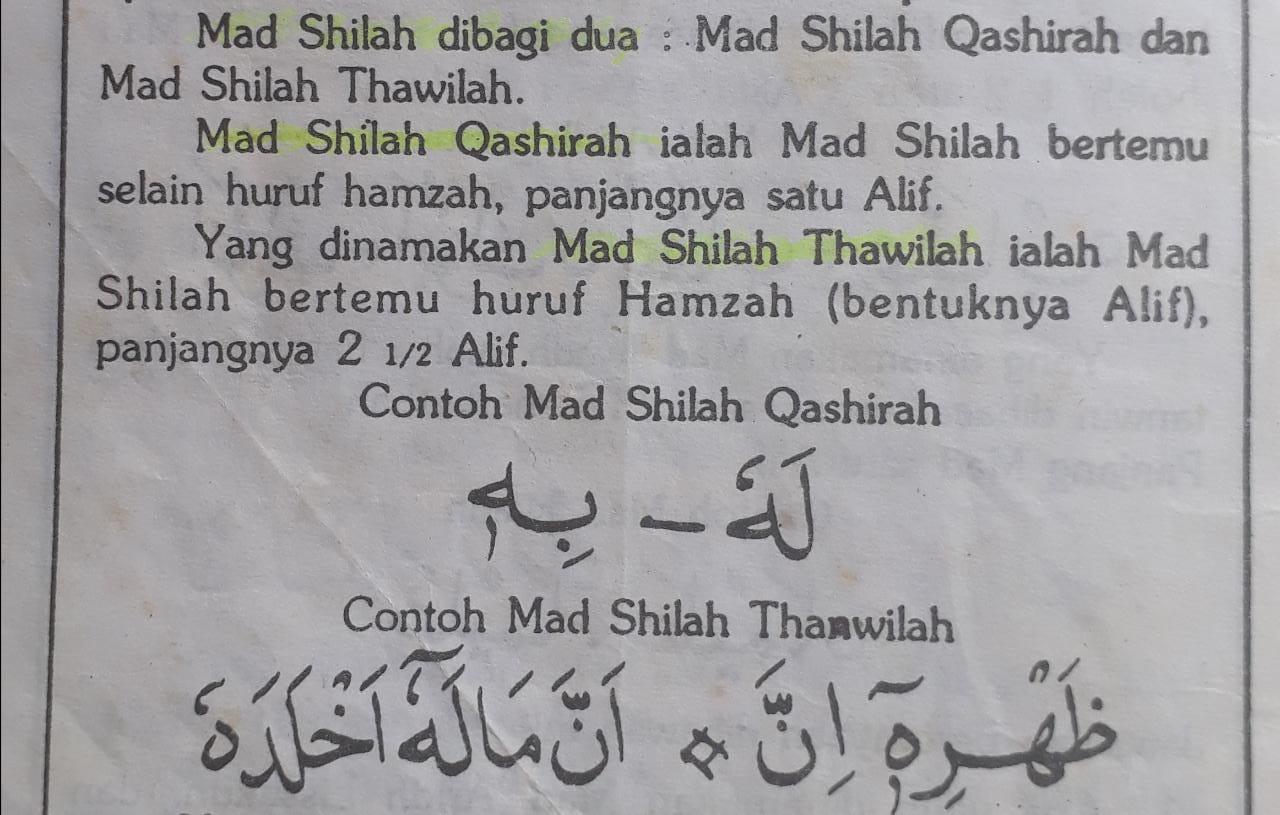 Mad Shilah dibagi dua : Mad Shilah Qashirah dan
Mad Shilah Thawilah.
Mad Shilah Qashirah ialah Mad Shilah bertemu
selain huruf hamzah, panjangnya satu Alif.
Yang dinamakan Mad Shilah Thawilah ialah Mad
Shilah bertemu huruf Hamzah (bentuknya Alif),
panjangnya 2 1/2 Alif.
Contoh Mad Shilah Qashirah
لَهٗ – بِهٖ
Contoh Mad Shilah Thanwilah
ظَهْرِهٖٓ اِنَّ * اَنَّ مَالَهٗٓ اَخْلَدَهٗ